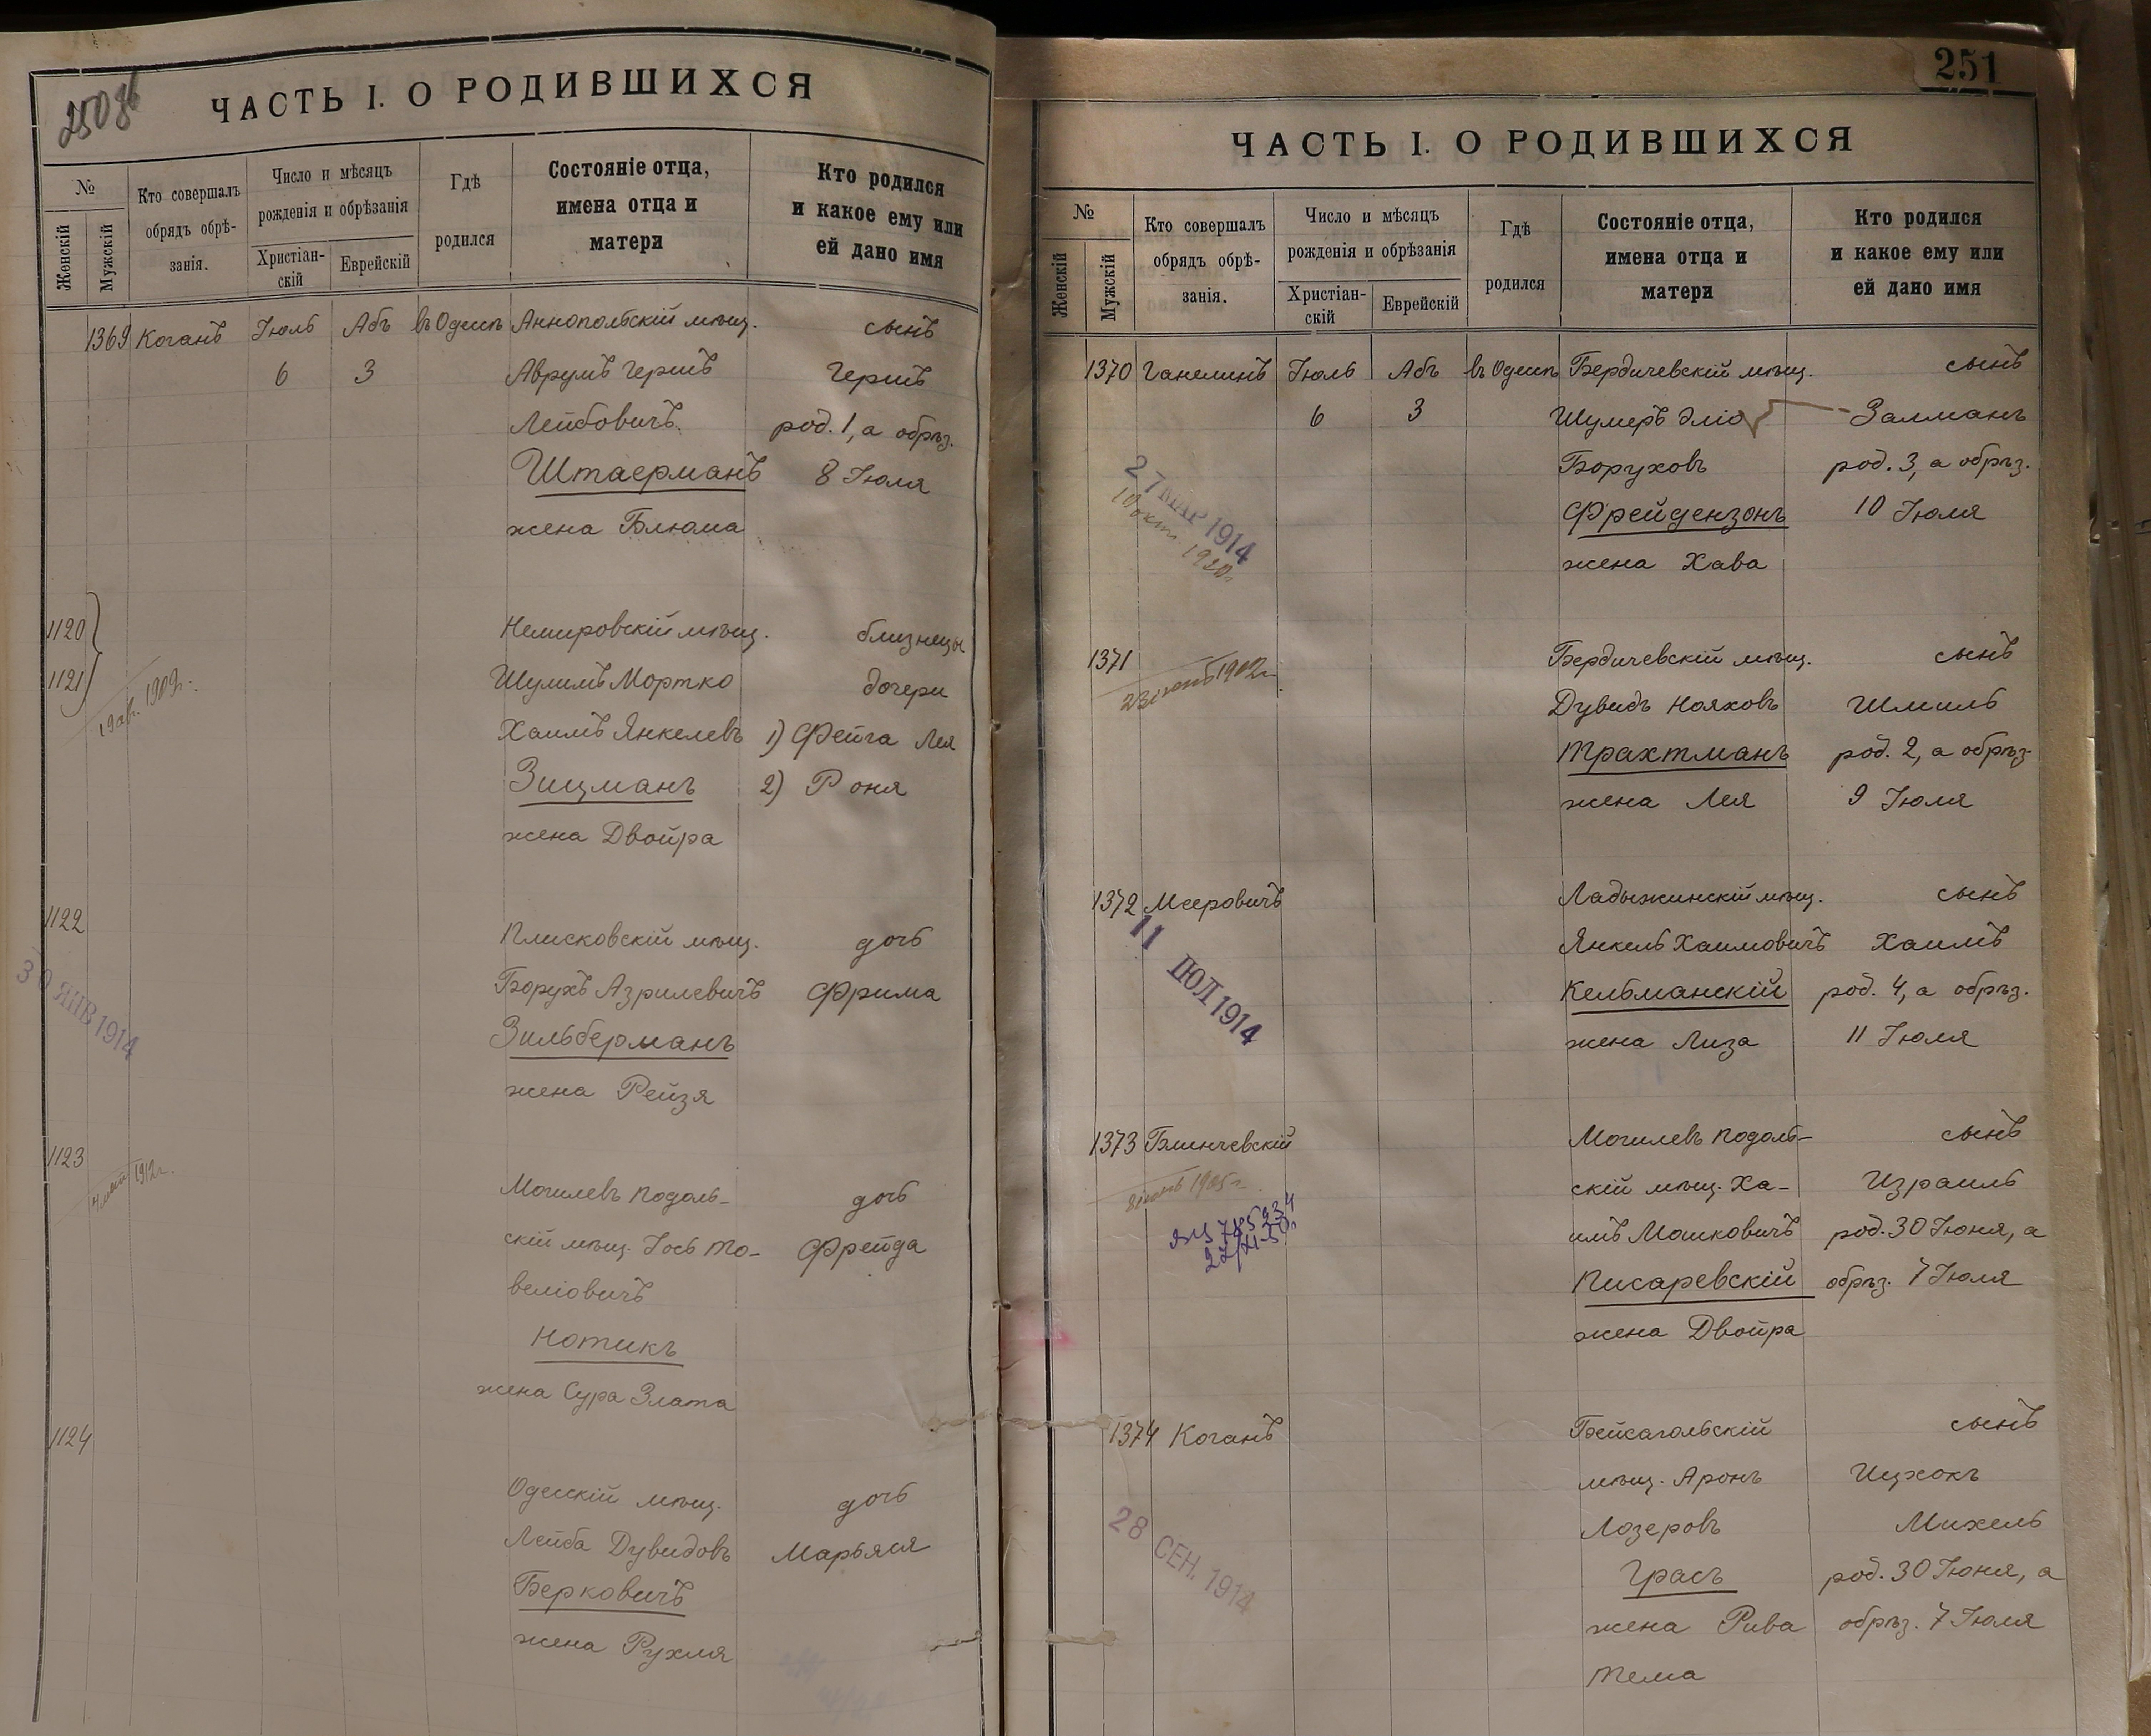 250 об
ЧАСТЬ I. О РОДИВШИХСЯ
№
Женскій
Мужскій
Кто совершалъ
обрядъ обрѣ-
занія.
Число и мѣсяцъ
рожденія и обрѣзанія
Христіан-
скій
Еврейскій
Гдѣ
родился
Состояніе отца,
имена отца и
матери
Кто родился
и какое ему или
ей дано имя
1369 Коганъ Іюль Абъ въ Одессѣ Аннопольскій мѣщ. сынъ
6 3 Аврумъ Гершъ Гершъ
Лейбовичъ род. 1, а обрѣз.
Штаерманъ 8 Іюля
жена Блюма
1120 Немировскій мѣщ. близнецы
1121 Шулимъ Мортко дочери
19 ав. 1909 г.
Хаимъ Янкелевъ 1) Фейга Лея
Зицманъ 2) Роня
жена Двойра
1122
Плисковскій мѣщ. дочь
Борухъ Азрилевичъ Фрима
30 ЯНВ 1914
Зильберманъ
жена Рейзя
1123
1912 г.
Могилевъ Подоль-
дочь
скій мѣщ. Іось То-
Фрейда
веліовичъ
Нотикъ
жена Сура Злата
1124
Одесскій мѣщ. дочь
Лейба Дувидовъ Марьяся
Берковичъ
жена Рухля
251
ЧАСТЬ I. О РОДИВШИХСЯ
№
Женскій
Мужскій
Кто совершалъ
обрядъ обрѣ-
занія.
Число и мѣсяцъ
рожденія и обрѣзанія
Христіан-
скій
Еврейскій
Гдѣ
родился
Состояніе отца,
имена отца и
матери
Кто родился
и какое ему или
ей дано имя
1370 Ганелинъ Іюль Абъ въ Одессѣ Бердичевскій мѣщ. сынъ
6 3 Шумеръ Эліо Залманъ
Боруховъ род. 3, а обрѣз.
27 МАР 1914
10 окт. 1920 г.
Фрейдензонъ 10 Іюля
жена Хава
1371 Бердичевскій мѣщ. сынъ
1902 г.
Дувидъ Нояховъ Шмиль
Трахтманъ род. 2, а обрѣз.
жена Лея 9 Іюля
1372 Мееровичъ Ладыжинскій мѣщ. сынъ
11 ІЮЛ 1914
Янкель Хаимовичъ Хаимъ
Кельманскій род. 4, а обрѣз.
жена Лиза 11 Іюля
1373 Блинчевскій Могилевъ Подоль-
сынъ
1905 г.
скій мѣщ. Ха-
Израиль
имъ Мошковичъ род. 30 Іюня, а
Писаревскій обрѣз. 7 Іюля
жена Двойра
1374 Коганъ Бейсагольскій сынъ
мѣщ. Аронъ Ицхокъ
28 СЕН. 1914
Лозеровъ Михель
Грасъ род. 30 Іюня, а
жена Рива обрѣз. 7 Іюля
Тема